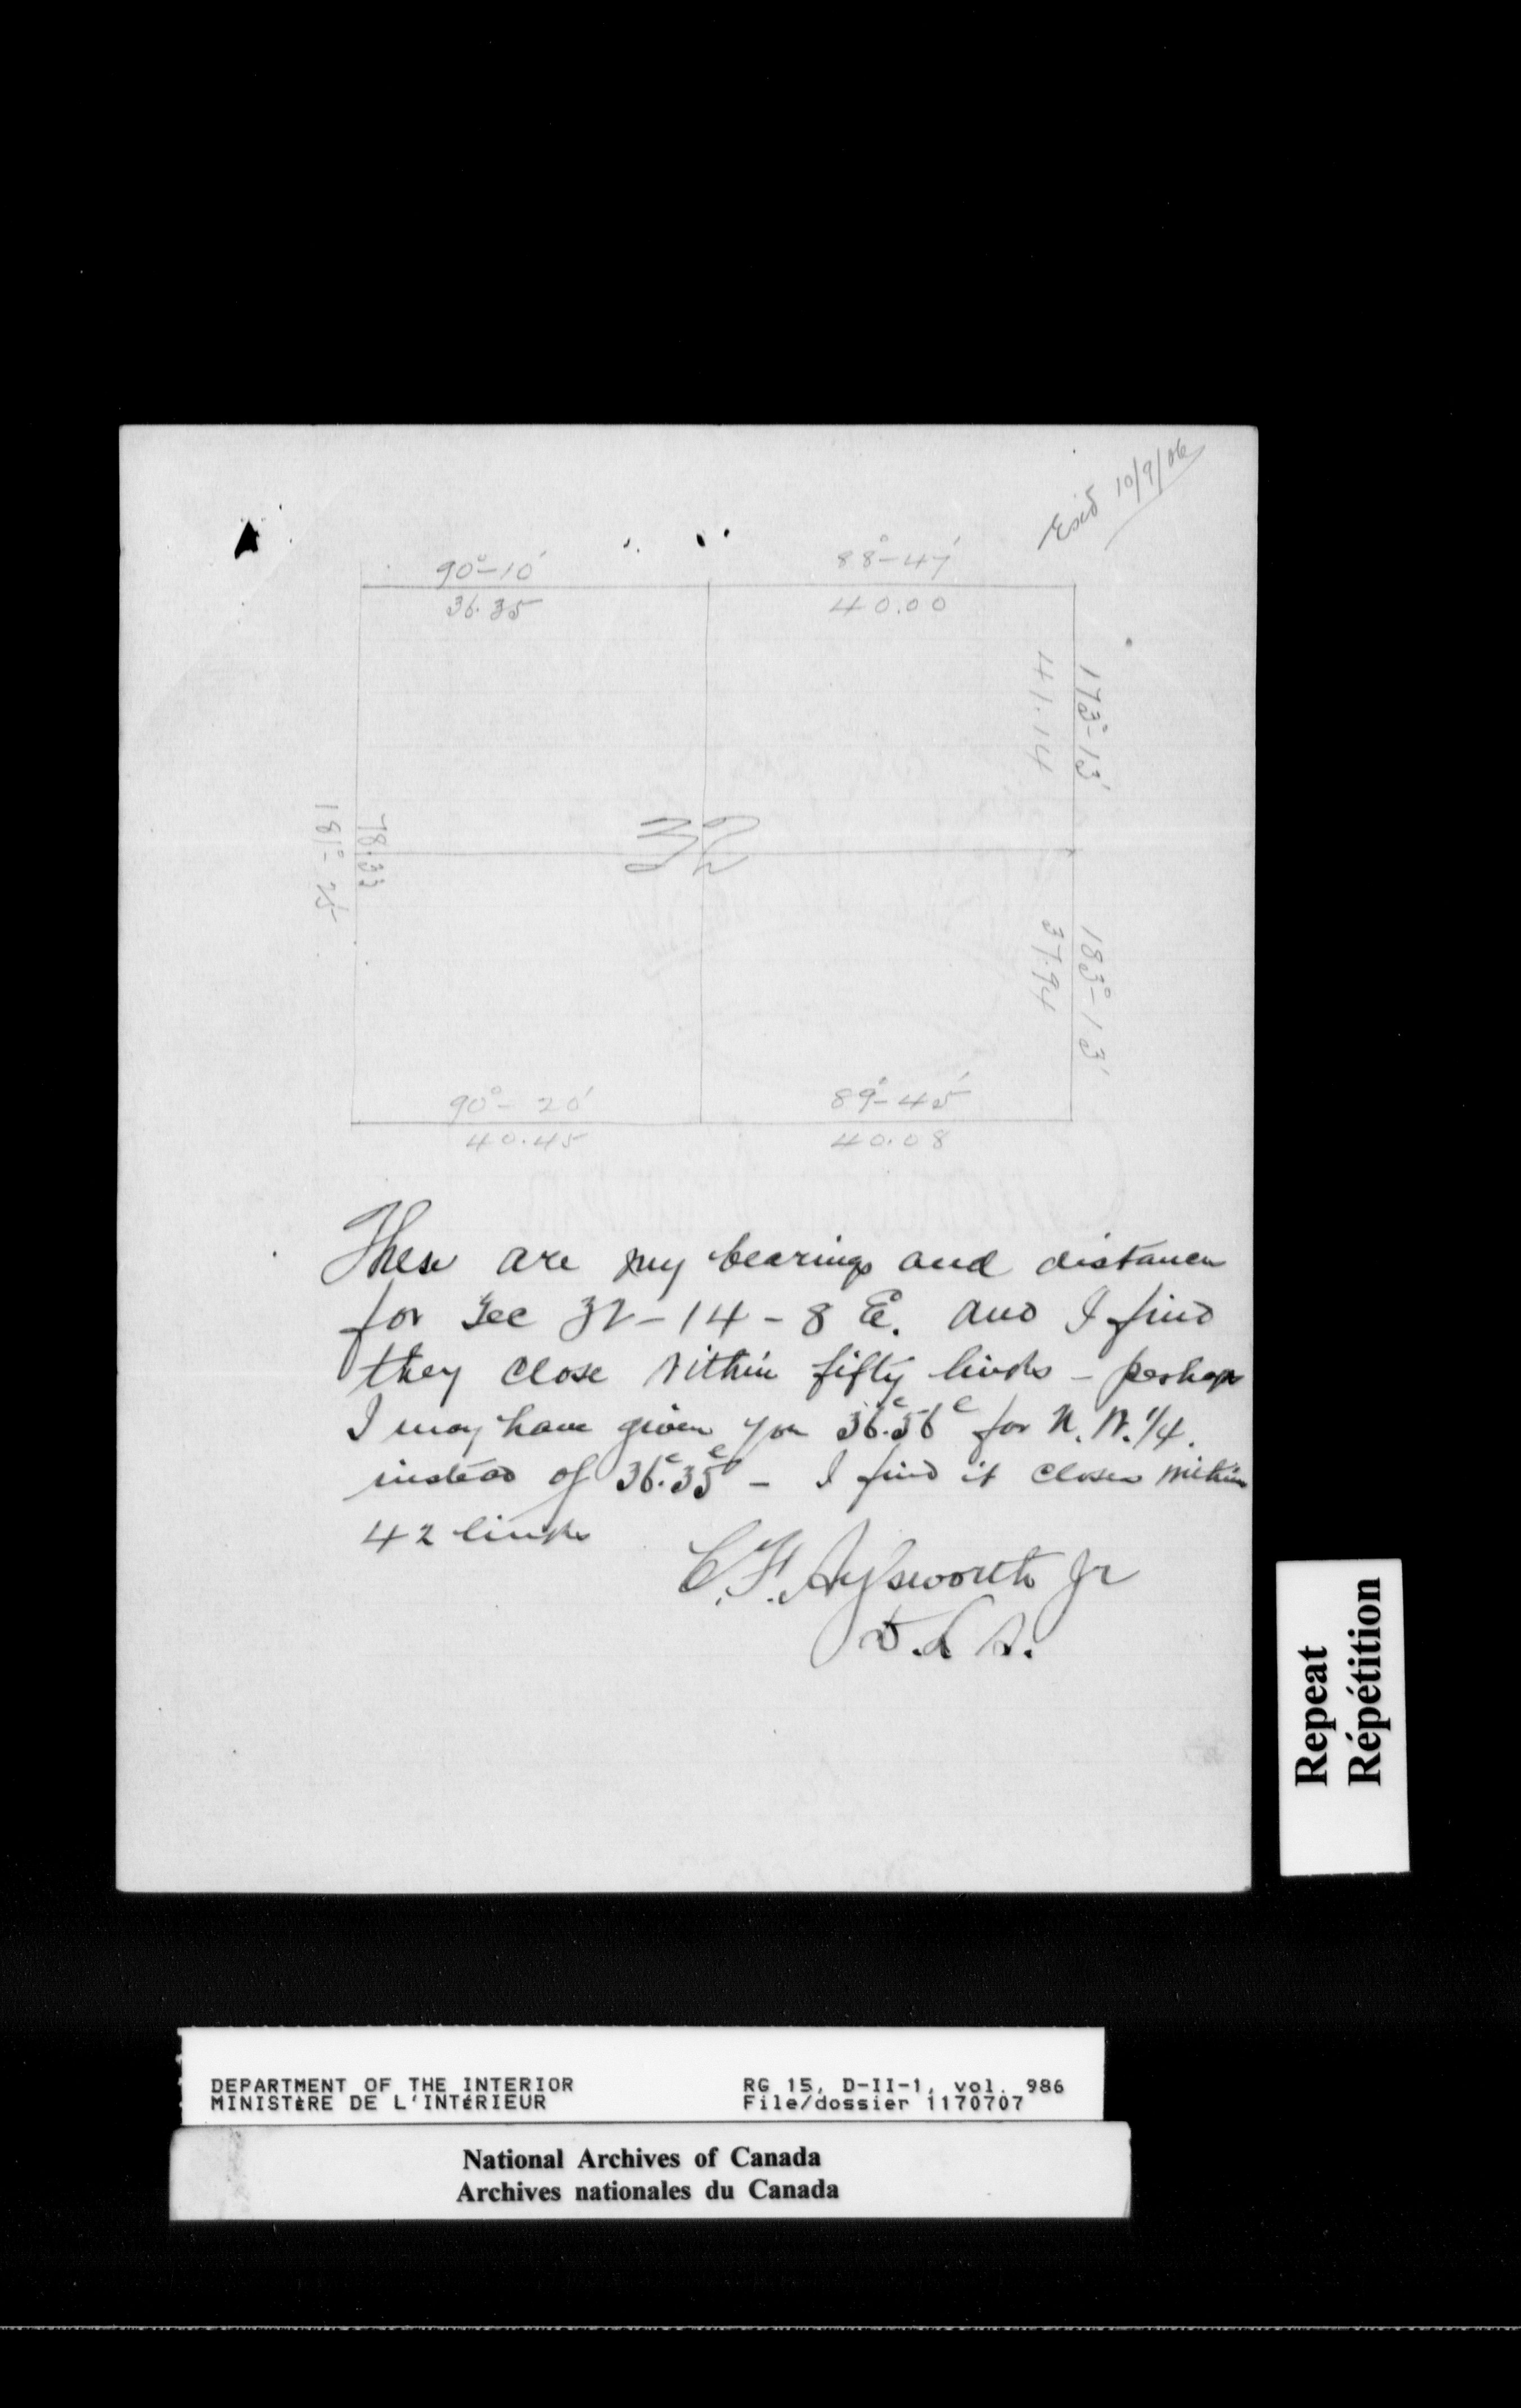 Rec'd 10/9/06
90°-10'
36.35
88°-47'
40.00
173°-13'
41.14
32
78.33
181°-25
183°-13'
37.94
90°-20'
40.45
89°-45'
40.08
These are my bearings and distances
for Sec 32-14-8 E. and I find
they close within fifty links - perhaps
I may have given you 36.56 for N.W. 1/4.
instead of 36.35 - I find it closes within
42 links
C.F. Aylsworth Jr
D.L.S.
Repeat
Répétition
DEPARTMENT OF THE INTERIOR RG 15, D-II-1, vol. 986
MINISTÈRE DE L'INTÉRIEUR File/dossier 1170707
National Archives of Canada
Archives nationales du Canada